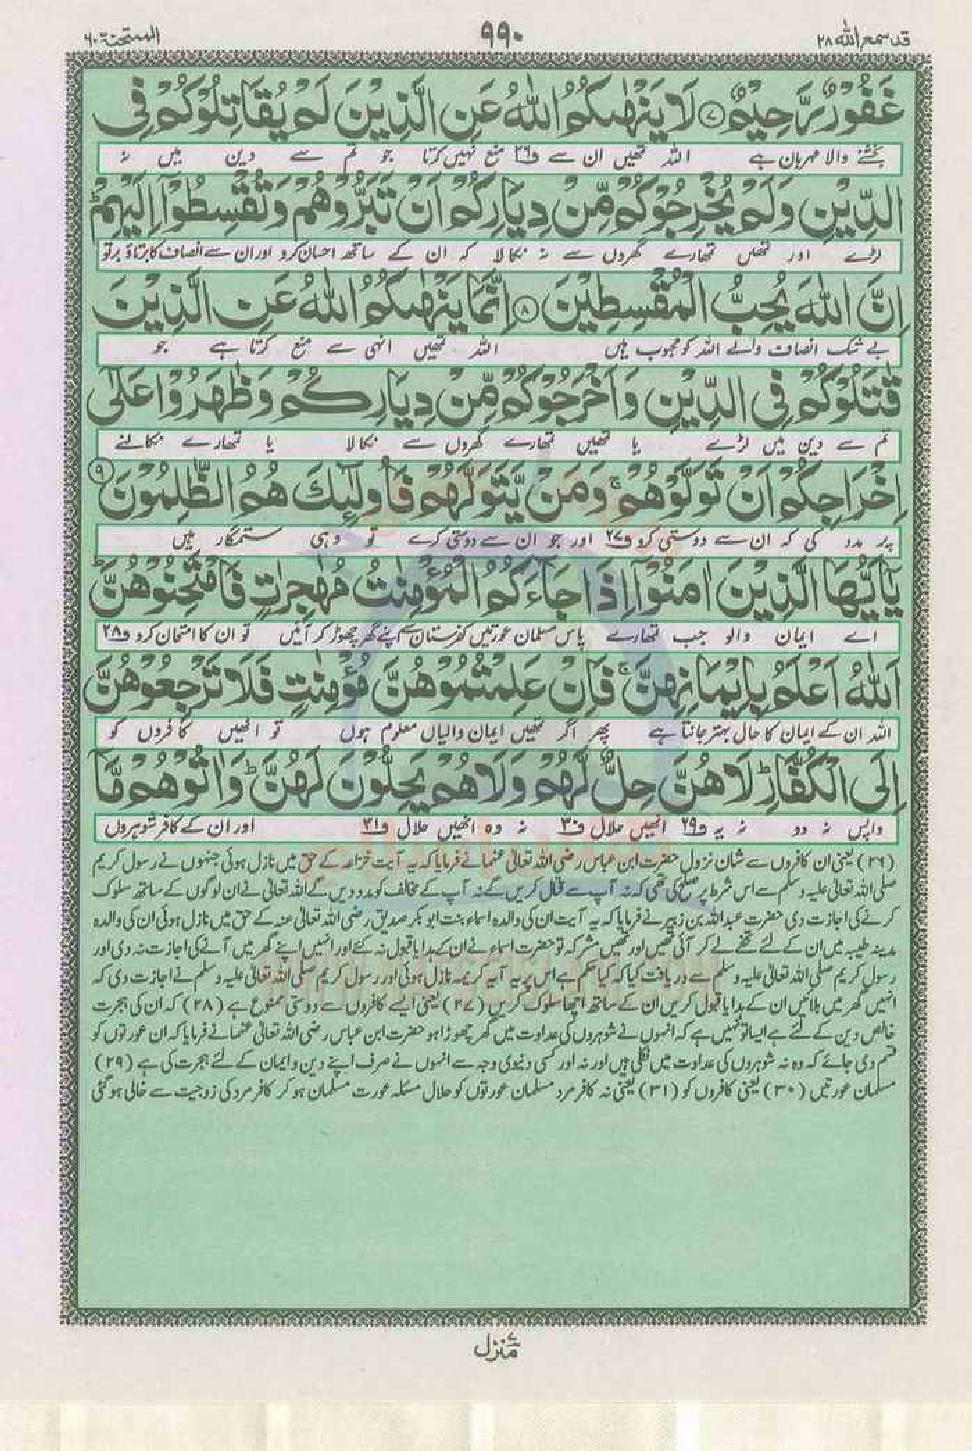 قد سمع الله ٢٨
٩٩٠
الممتحنة ٦٠
غَفُوْرٌ رَّحِیْمٌ ۝۷ لَا یَنْهٰىكُمُ اللّٰهُ عَنِ الَّذِیْنَ لَمْ یُقَاتِلُوْكُمْ فِی
بخشنے والا مہربان ہے اللہ تمھیں ان سے ف۲۶ منع نہیں کرتا جو تم سے دین میں نہ
الدِّیْنِ وَلَمْ یُخْرِجُوْكُمْ مِّنْ دِیَارِكُمْ اَنْ تَبَرُّوْهُمْ وَتُقْسِطُوْۤا اِلَیْهِمْ ؕ
لڑے اور تمھیں تمھارے گھروں سے نہ نکالا کہ ان کے ساتھ احسان کرو اور ان سے انصاف کا برتاؤ برتو
اِنَّ اللّٰهَ یُحِبُّ الْمُقْسِطِیْنَ ۝۸ اِنَّمَا یَنْهٰىكُمُ اللّٰهُ عَنِ الَّذِیْنَ
بے شک انصاف والے اللہ کو محبوب ہیں اللہ تمھیں انہی سے منع کرتا ہے جو
قٰتَلُوْكُمْ فِی الدِّیْنِ وَاَخْرَجُوْكُمْ مِّنْ دِیَارِكُمْ وَظٰهَرُوْا عَلٰۤی
تم سے دین میں لڑے یا تمھیں تمھارے گھروں سے نکالا یا تمھارے نکالنے
اِخْرَاجِكُمْ اَنْ تَوَلَّوْهُمْ ۚ وَمَنْ یَّتَوَلَّهُمْ فَاُولٰٓىِٕكَ هُمُ الظّٰلِمُوْنَ ۝۹
پر مدد کی کہ ان سے دوستی کرو ف۲۷ اور جو ان سے دوستی کرے تو وہی ستمگار ہیں
یٰۤاَیُّهَا الَّذِیْنَ اٰمَنُوْۤا اِذَا جَآءَكُمُ الْمُؤْمِنٰتُ مُهٰجِرٰتٍ فَامْتَحِنُوْهُنَّ ؕ
اے ایمان والو جب تمھارے پاس مسلمان عورتیں کفرستان سے اپنے گھر چھوڑ کر آئیں تو ان کا امتحان کرو ف۲۸
اَللّٰهُ اَعْلَمُ بِاِیْمَانِهِنَّ ۚ فَاِنْ عَلِمْتُمُوْهُنَّ مُؤْمِنٰتٍ فَلَا تَرْجِعُوْهُنَّ
اللہ ان کے ایمان کا حال بہتر جانتا ہے پھر اگر تمھیں ایمان والیاں معلوم ہوں تو انھیں کافروں کو
اِلَی الْكُفَّارِ ؕ لَا هُنَّ حِلٌّ لَّهُمْ وَلَا هُمْ یَحِلُّوْنَ لَهُنَّ ؕ وَاٰتُوْهُمْ مَّاۤ
واپس نہ دو نہ یہ ف۲۹ انھیں حلال ف۳۰ نہ وہ انھیں حلال ف۳۱ اور ان کے کافر شوہروں
(۲۶) یعنی ان کافروں سے شان نزول حضرت ابن عباس رضی اللہ تعالیٰ عنہما نے فرمایا کہ یہ آیت خزاعہ کے حق میں نازل ہوئی جنہوں نے رسول کریم
صلی اللہ تعالیٰ علیہ وسلم سے اس شرط پر صلح کی تھی کہ نہ آپ سے قتال کریں گے نہ آپ کے مخالف کو مدد دیں گے اللہ تعالیٰ نے ان لوگوں کے ساتھ سلوک
کرنے کی اجازت دی حضرت عبداللہ بن زبیر نے فرمایا کہ یہ آیت ان کی والدہ اسماء بنت ابوبکر صدیق رضی اللہ تعالیٰ عنہ کے حق میں نازل ہوئی ان کی والدہ
مدینہ طیبہ میں ان کے لئے تحفے لے کر آئی تھیں اور تھیں مشرکہ تو حضرت اسماء نے ان کے ہدایا قبول نہ کئے اور انہیں اپنے گھر میں آنے کی اجازت نہ دی اور
رسول کریم صلی اللہ تعالیٰ علیہ وسلم سے دریافت کیا کہ کیا حکم ہے اس پر یہ آیہ کریمہ نازل ہوئی اور رسول کریم صلی اللہ تعالیٰ علیہ وسلم نے اجازت دی کہ
انہیں گھر میں بلائیں ان کے ہدایا قبول کریں ان کے ساتھ اچھا سلوک کریں (۲۷) یعنی ایسے کافروں سے دوستی ممنوع ہے (۲۸) کہ ان کی ہجرت
خالص دین کے لئے ہے ایسا تو نہیں ہے کہ انہوں نے شوہروں کی عداوت میں گھر چھوڑا ہو حضرت ابن عباس رضی اللہ تعالیٰ عنہما نے فرمایا کہ ان عورتوں کو
قسم دی جائے کہ وہ نہ شوہروں کی عداوت میں نکلی ہیں اور نہ اور کسی دنیوی وجہ سے انہوں نے صرف اپنے دین و ایمان کے لئے ہجرت کی ہے (۲۹)
مسلمان عورتیں (۳۰) یعنی کافروں کو (۳۱) یعنی نہ کافر مرد مسلمان عورتوں کو حلال مسئلہ عورت مسلمان ہو کر کافر مرد کی زوجیت سے خالی ہو گئی
منزل ۷